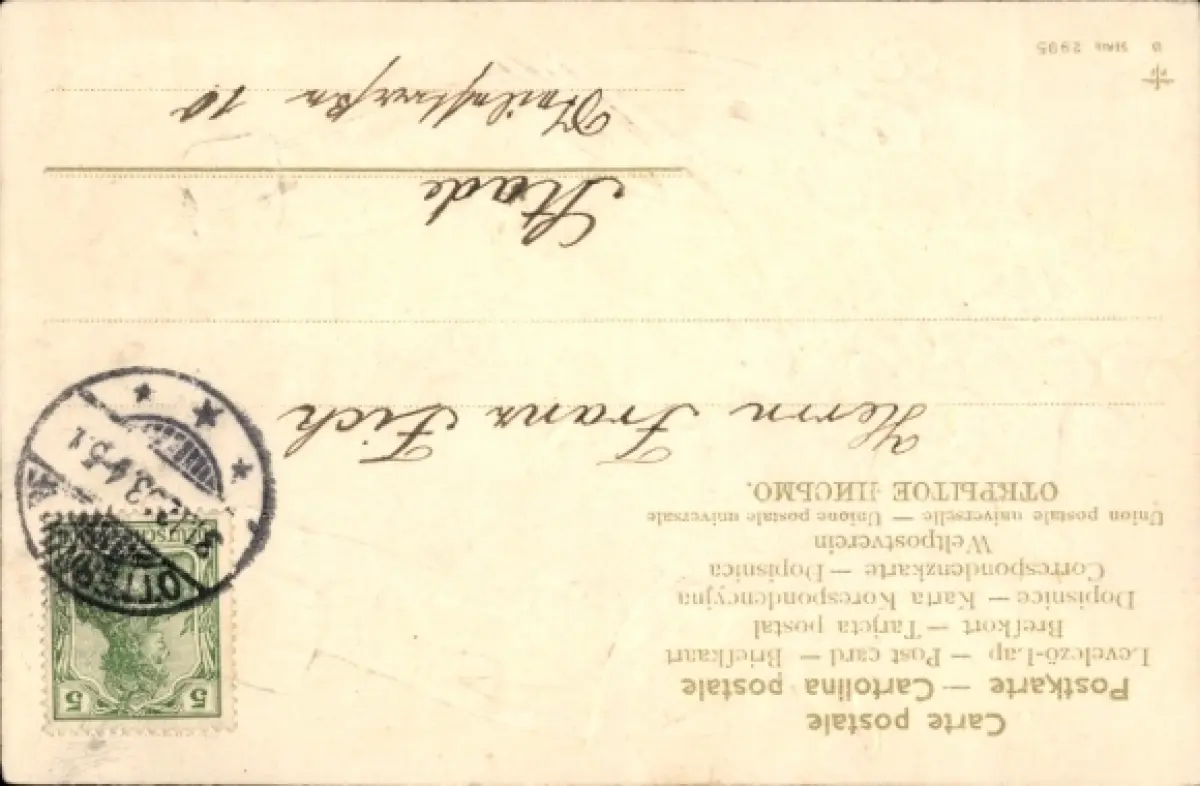 5 5
Carte postale
Postkarte — Cartolina postale
Levelező-Lap — Post card — Briefkaart
Brefkort — Tarjeta postal
Dopisnice — Karta Korespondencyjna
Correspondenzkarte — Dopisnica
Weltpostverein
Union postale universelle — Unione postale universale
ОТКРЫТОЕ ПИСЬМО.
Herrn Franz
Stade
10
2995